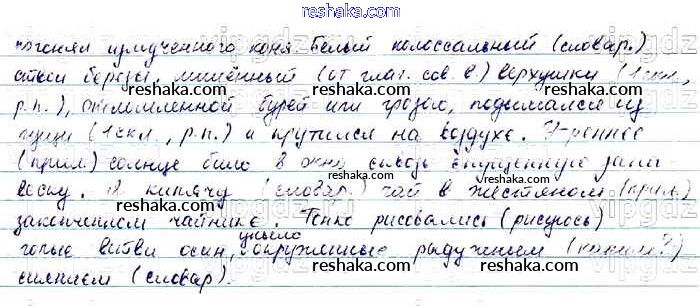 reshaka.com
погонял измученного коня. Белый колоссальный (словар.)
ствол березы, лишённый (от глаг. сов. в.) верхушки (1 скл.,
р.п.), отломленной бурей или грозою, подымался из
гущи (1 скл., р.п.) и круглился на воздухе. Утреннее
(прил.) солнце било в окно сквозь опущенную зана-
веску. Я кипячу (словар.) чай в жестяном (прил.)
закопчённом чайнике. Тонко рисовались (рисуюсь)
голые ветви осин, уныло окруженные радужным (каким?)
сиянием (словар).
reshaka.com
reshaka.com
reshaka.com
reshaka.com
reshaka.com
reshaka.com